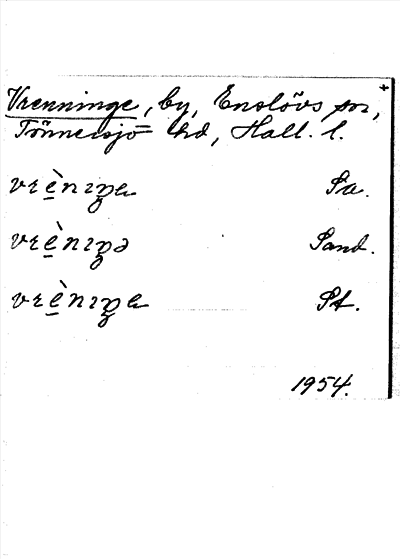 Vrenninge, by, Enslövs sn, +
Tönnersjö hd, Hall. l.
vrènıŋa Sa.
vrènıŋə Sand.
vrènıŋa St.
1954.